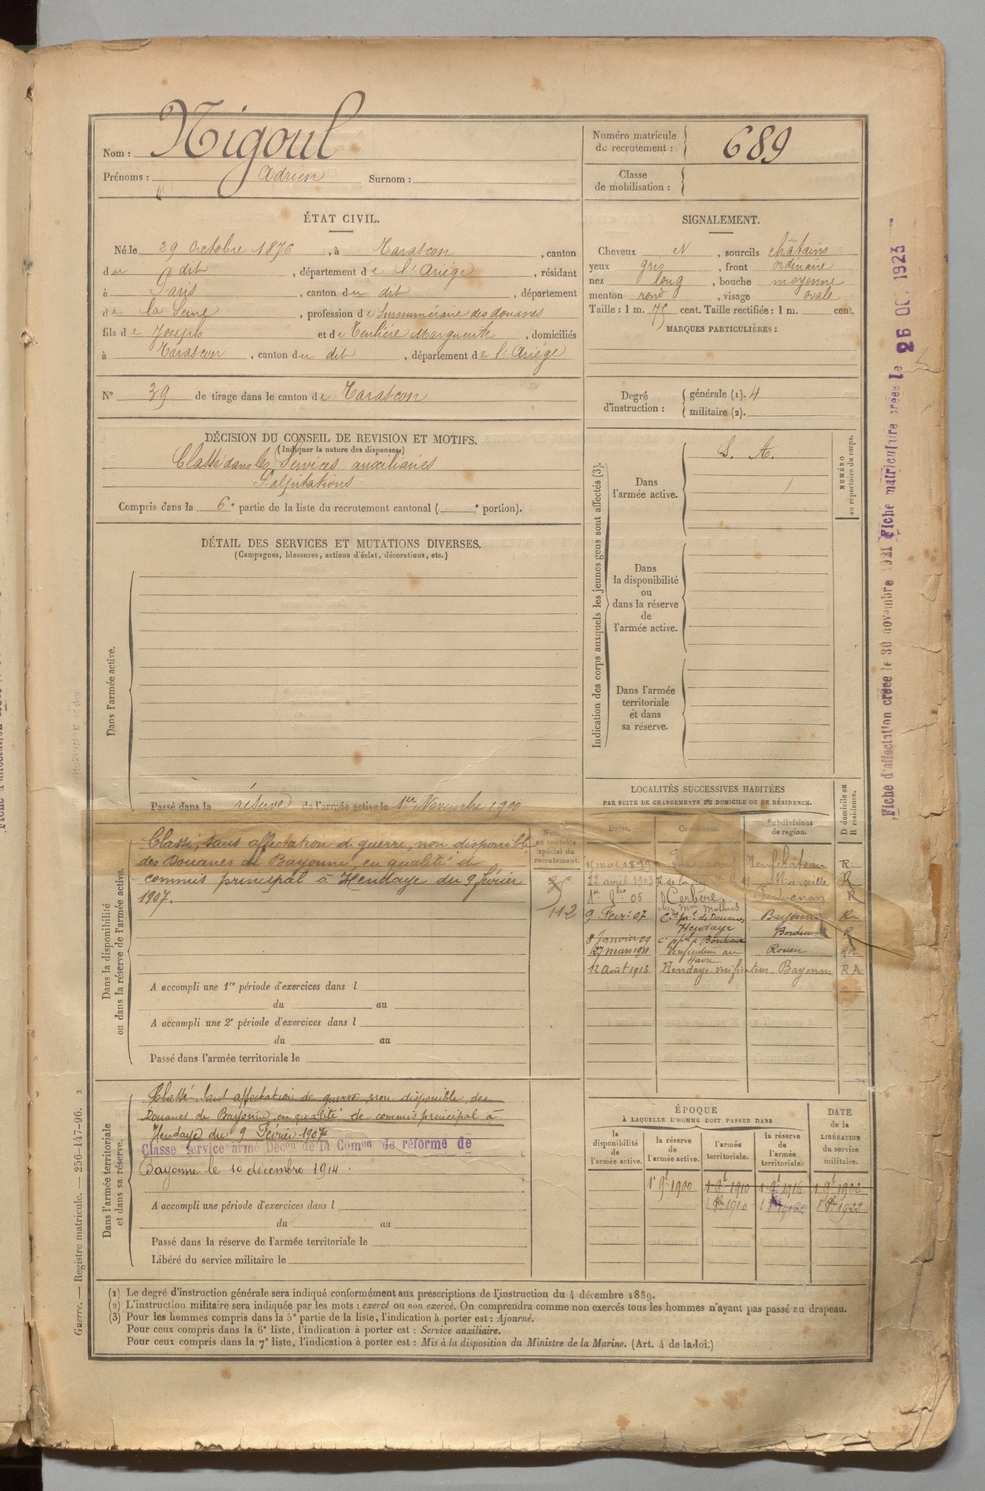 Nom : Nigoul
Prénoms : Adrien Surnom :
Numéro matricule du recrutement : 689
Classe de mobilisation :
ÉTAT CIVIL.
Né le 29 Octobre 1876, à Tarascon, canton
du dit, département de l'Ariège, résidant
à Paris, canton du dit, département
de la Seine, profession de Surnuméraire des douanes
fils de Joseph et de Marguerite, domiciliés
à Tarascon, canton du dit, département de l'Ariège
N° 39 de tirage dans le canton de Tarascon
SIGNALEMENT.
Cheveux N, sourcils châtains
yeux gris, front ordinaire
nez long, bouche moyenne
menton rond, visage ovale
Taille : 1 m. 75 cent. Taille rectifiée : 1 m. cent.
MARQUES PARTICULIÈRES :
Degré d'instruction : générale (1). 4
militaire (2).
DÉCISION DU CONSEIL DE REVISION ET MOTIFS.
(Indiquer la nature des dispenses)
Classé dans les Services auxiliaires
Palpitations
Compris dans la 6e partie de la liste du recrutement cantonal ( e portion).
DÉTAIL DES SERVICES ET MUTATIONS DIVERSES.
(Campagnes, blessures, actions d'éclat, décorations, etc.)
Dans l'armée active.
Passé dans la réserve de l'armée active le 1er Novembre 1900
Indication des corps auxquels les jeunes gens sont affectés (3).
Dans l'armée active.
S. A.
NUMÉRO au répertoire du corps.
Dans la disponibilité ou dans la réserve de l'armée active.
Dans l'armée territoriale et dans sa réserve.
Dans la disponibilité ou dans la réserve de l'armée active.
Classé, sans affectation de guerre, non disponible
des Douanes de Bayonne, en qualité de
commis principal à Hendaye du 9 février
1907.
A accompli une 1re période d'exercices dans l
du au
A accompli une 2e période d'exercices dans l
du au
Passé dans l'armée territoriale le
112
LOCALITÉS SUCCESSIVES HABITÉES
PAR SUITE DE CHANGEMENTS DE DOMICILE OU DE RÉSIDENCE.
Dates. Communes. Subdivisions de région. D domicile ou R résidence.
mai 1899 Neufchâteau R
22 avril 1903 Marseille R
1er 05 Cerbère Perpignan R
9 Févr. 07 Cis pal de Douanes Hendaye Bayonne R
8 Janvier 09 Cis pal à Bordeaux Bordeaux R
27 mars 1911 Vérificateur au Havre Rouen R
12 Août 1913 Hendaye vérificateur Bayonne R
Dans l'armée territoriale et dans sa réserve.
Classé sans affectation de guerre, non disponible, des
Douanes de Bayonne, en qualité de commis principal à
Hendaye du 9 Février 1907
Classé service armé Décon de la Comon de réforme de
Bayonne le 10 décembre 1914.
A accompli une période d'exercices dans l
du au
Passé dans la réserve de l'armée territoriale le
Libéré du service militaire le
ÉPOQUE
À LAQUELLE L'HOMME DOIT PASSER DANS
la disponibilité de l'armée active. la réserve de l'armée active. l'armée territoriale. la réserve de l'armée territoriale. DATE de la LIBÉRATION du service militaire.
1er 9bre 1900 1er 9bre 1910 1er 9bre 1916 1er 9bre 1922
(1) Le degré d'instruction générale sera indiqué conformément aux prescriptions de l'instruction du 4 décembre 1889.
(2) L'instruction militaire sera indiquée par les mots : exercé ou non exercé. On comprendra comme non exercés tous les hommes n'ayant pas passé au drapeau.
(3) Pour les hommes compris dans la 5e partie de la liste, l'indication à porter est : Ajourné.
Pour ceux compris dans la 6e liste, l'indication à porter est : Service auxiliaire.
Pour ceux compris dans la 7e liste, l'indication à porter est : Mis à la disposition du Ministre de la Marine. (Art. 4 de la loi.)
Guerre. — Registre matricule. — 256-147-96.
Fiche d'affectation créée le 30 novembre 1921 Fiche matriculaire créée le 26 OC. 1923